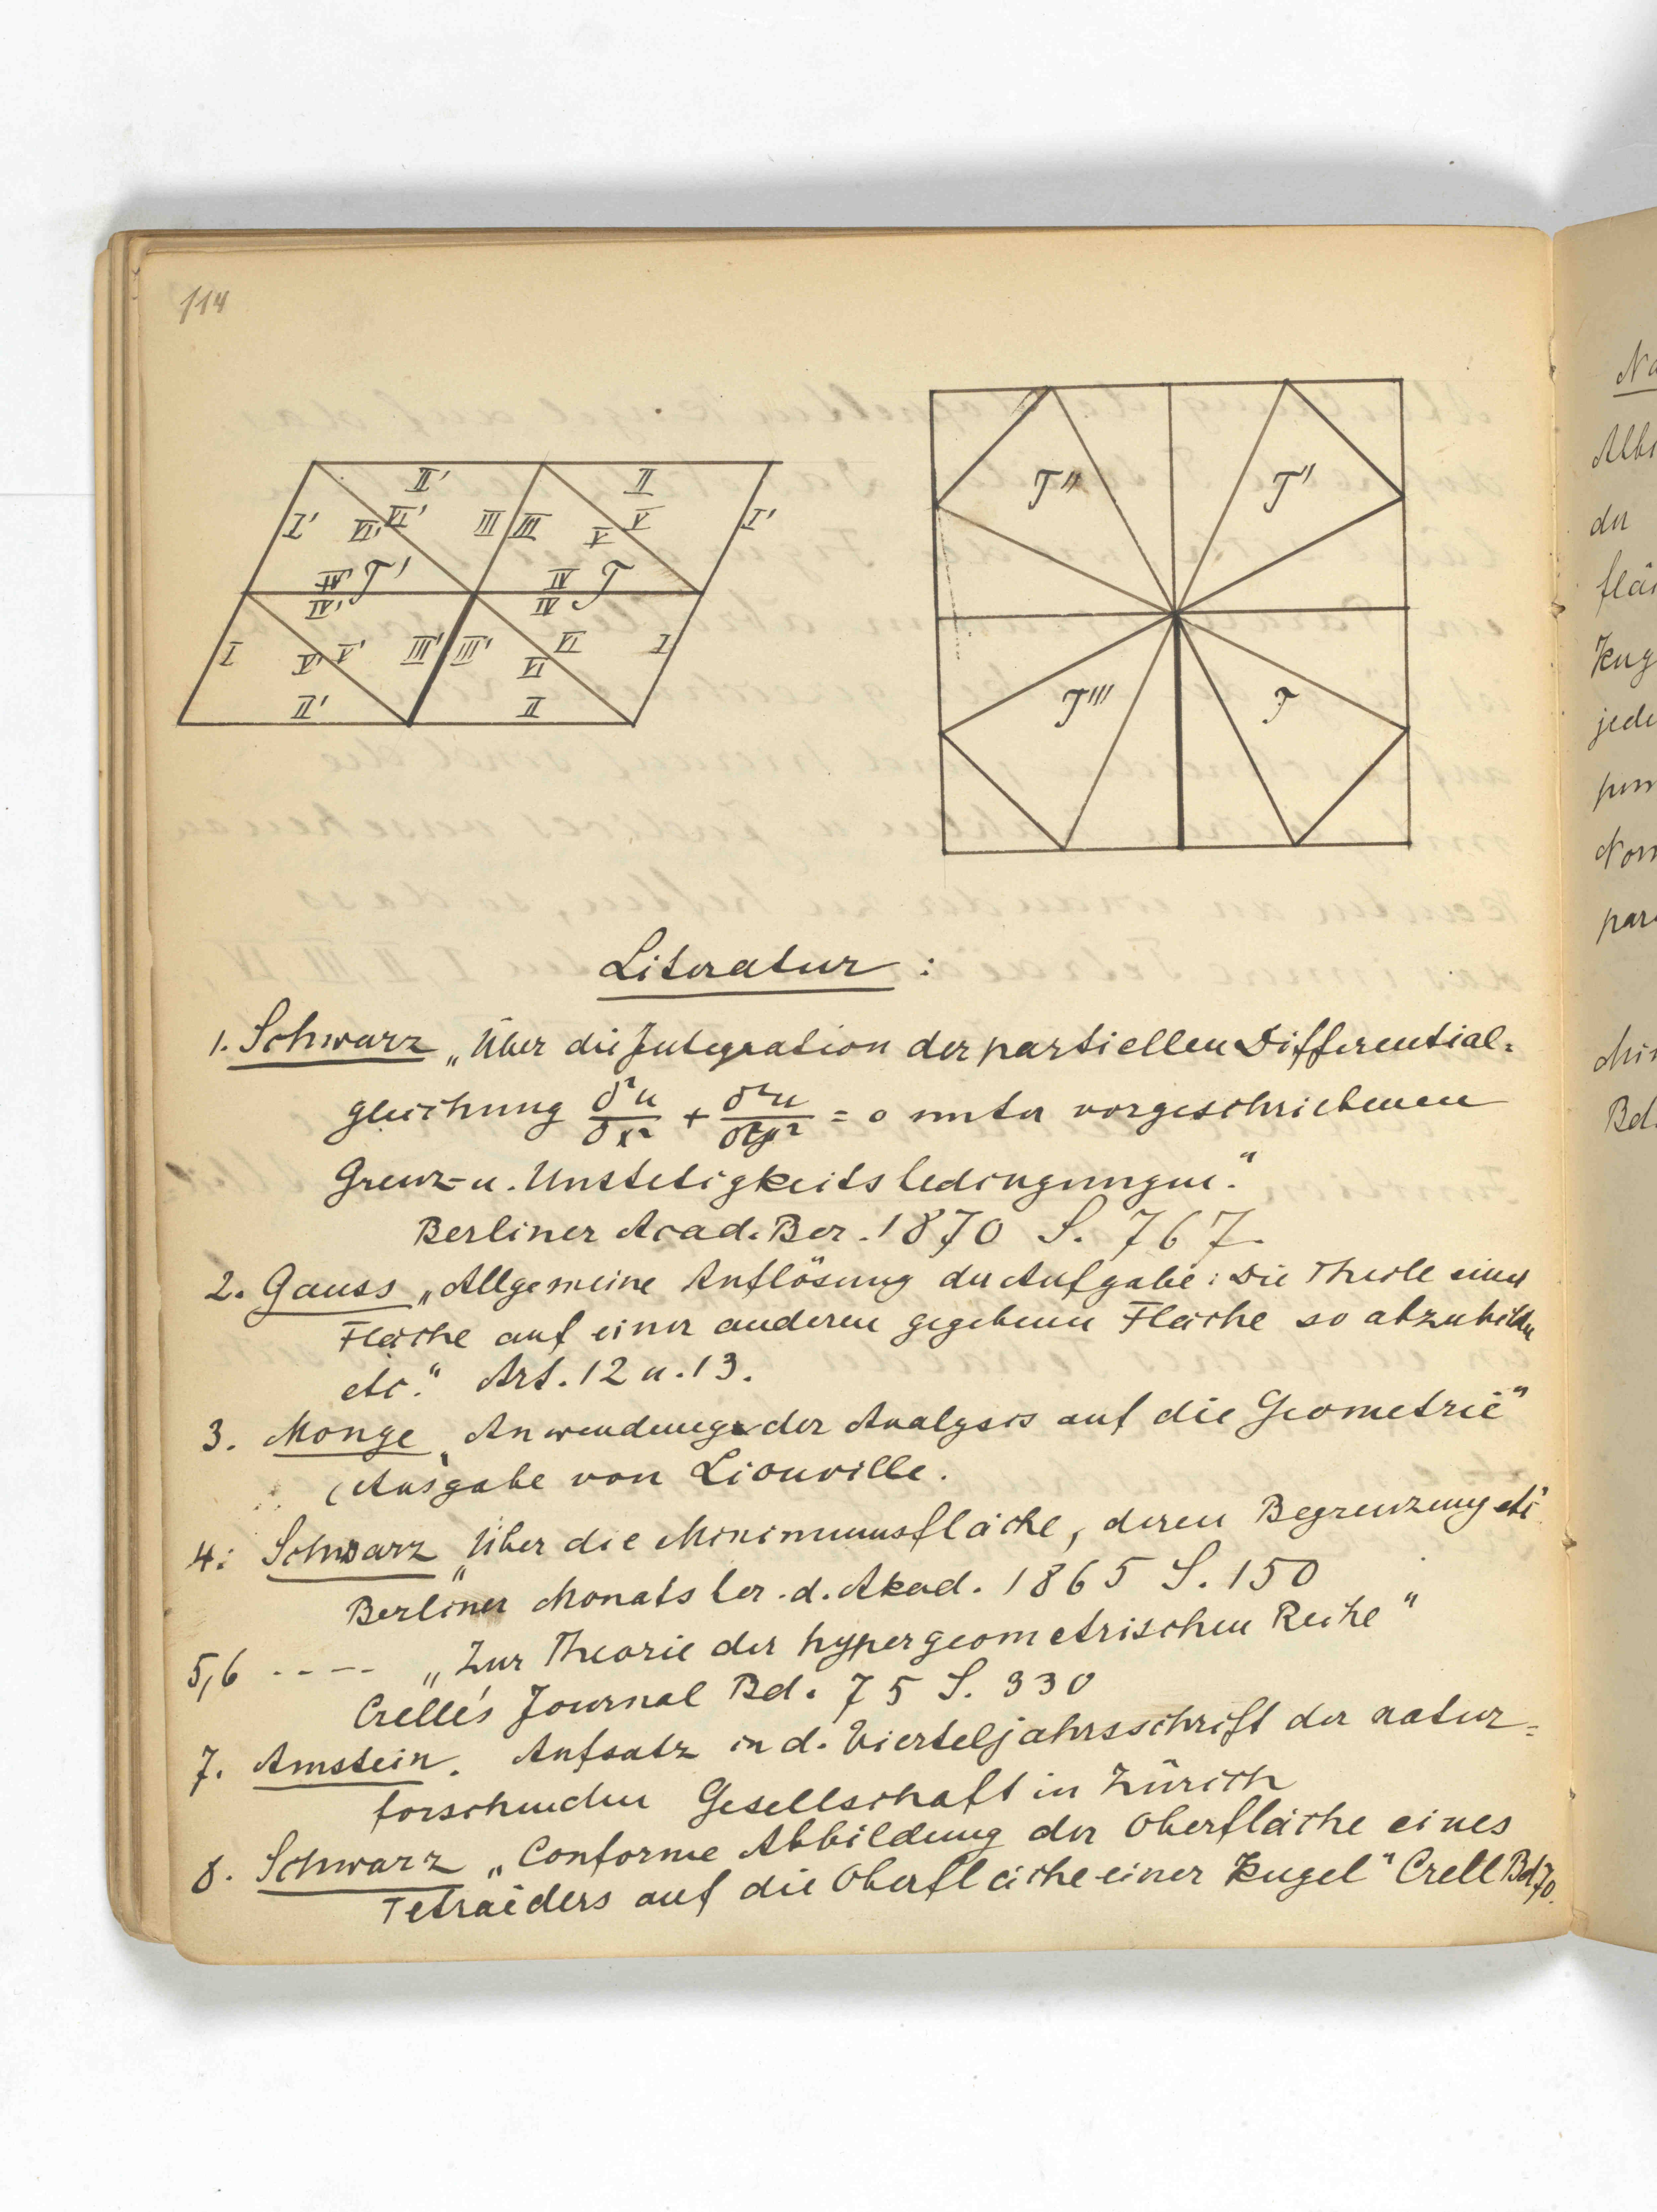 114
II' II
I' VI' VI' III III V V I'
IV' T' IV T
IV' IV
I V' V' III' III' VI VI I
II' II
T'' T'
T''' T
Literatur :
1. Schwarz „Über die Integration der partiellen Differential=
gleichung δ²u/δx² + δ²u/δy² = 0 unter vorgeschriebenen
Grenz- u. Unstetigkeitsbedingungen."
Berliner Acad. Ber. 1870 S. 767.
2. Gauss „Allgemeine Auflösung der Aufgabe: Die Theile einer
Fläche auf einer anderen gegebenen Fläche so abzubilden
etc." Art. 12 u. 13.
3. Monge „Anwendung der Analysis auf die Geometrie"
(Ausgabe von Liouville.
4. Schwarz „Über die Minimumsfläche, deren Begrenzung etc"
Berliner Monatsber. d. Akad. 1865 S. 150
5,6 ---- „Zur Theorie der hypergeometrischen Reihe"
Crelle's Journal Bd. 75 S. 330
7. Amstein. Aufsatz in d. Vierteljahrsschrift der natur=
forschenden Gesellschaft in Zürich
8. Schwarz „Conforme Abbildung der Oberfläche eines
Tetraëders auf die Oberfläche einer Kugel" Crell Bd 70.
Na
der
flä
Kug
jede
Bd.